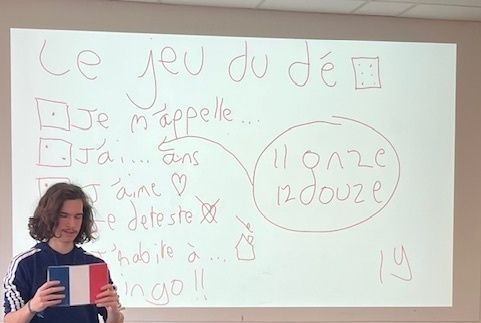 Le jeu du dé
Je m'appelle...
J'ai.... ans
J'aime ♡
e deteste
'habite à ...
ingo !!
11 onze
12 douze